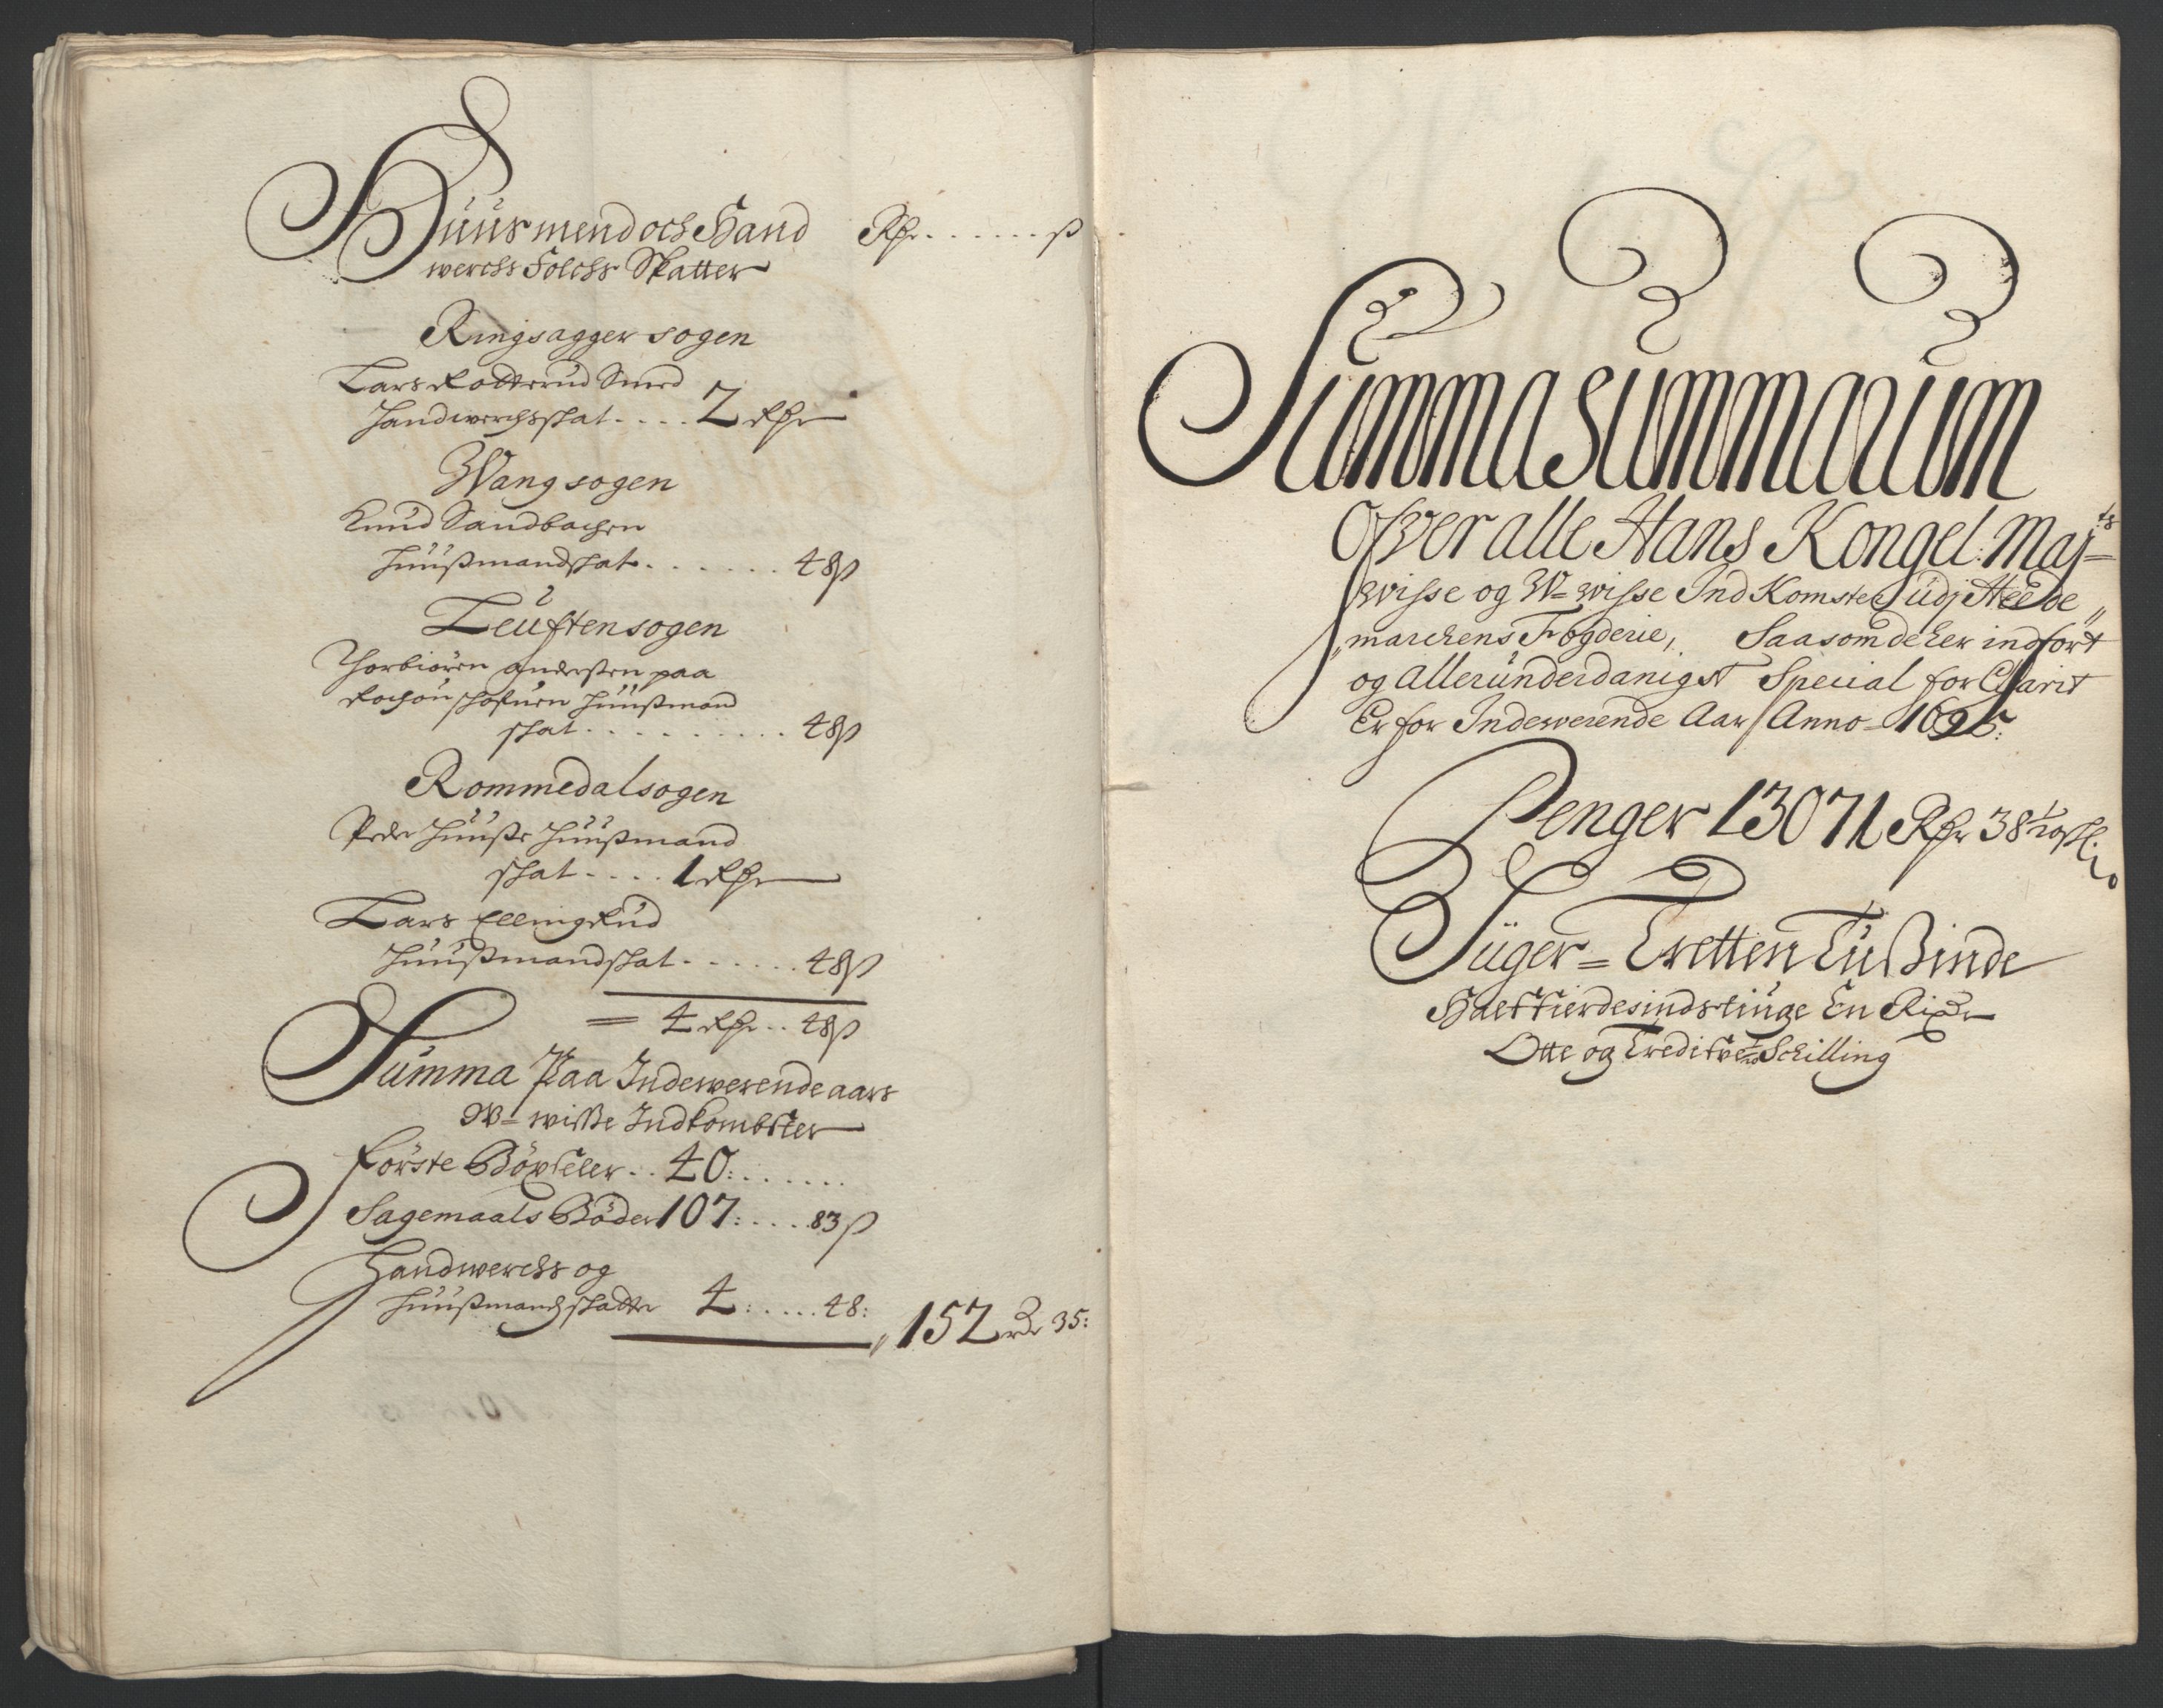 Huusmend och Hand Rdr. . . . . . . ß
werchs Folchs Skatter
Ringsagger sogen
Lars Rotterud Smed
Handwerchsskat. . . . 2 Rdr
Wang sogen
Knud Sandbachen
Huußmandskat. . . . . . . 48 ß
Leuften sogen
Thorbiören Anderßen paa
Huußmand
skat. . . . . . . . . . 48 ß
Rommedal sogen
Peder Huuße Huußmand
skat. . . . 1 Rdr
Lars Ellingrud
Huußmandskat. . . . . . 48 ß
= 4 Rdr. . 48 ß
Summa Paa Indewerende aars
W= wiße Indkombster
Förste Böxseler. . 40: . . . . . .
Sagemaals Böder 107: . . . . 83 ß
Handwerchs og
Huußmandsskatte 4: . . . . 48:
152 Rdr 35:
Summa Summarum
Ofver alle Hans Kongel: Maj=ts
wisse og W=wisse Ind Komster udj Heede„
„marchens Fogderie, Saasom de her indfört
og Allerunderdanigst Special forClarit
Er for Indewerende Aar Anno 1695:
Penger 13071 Rdr 38
Siger= Tretten Tußinde
Halffierdesindstiuge En Rixdr
Otte og Tredifve Schilling